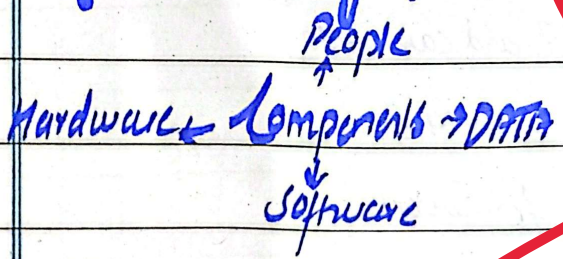 People
Hardware ← Components → DATA
Software